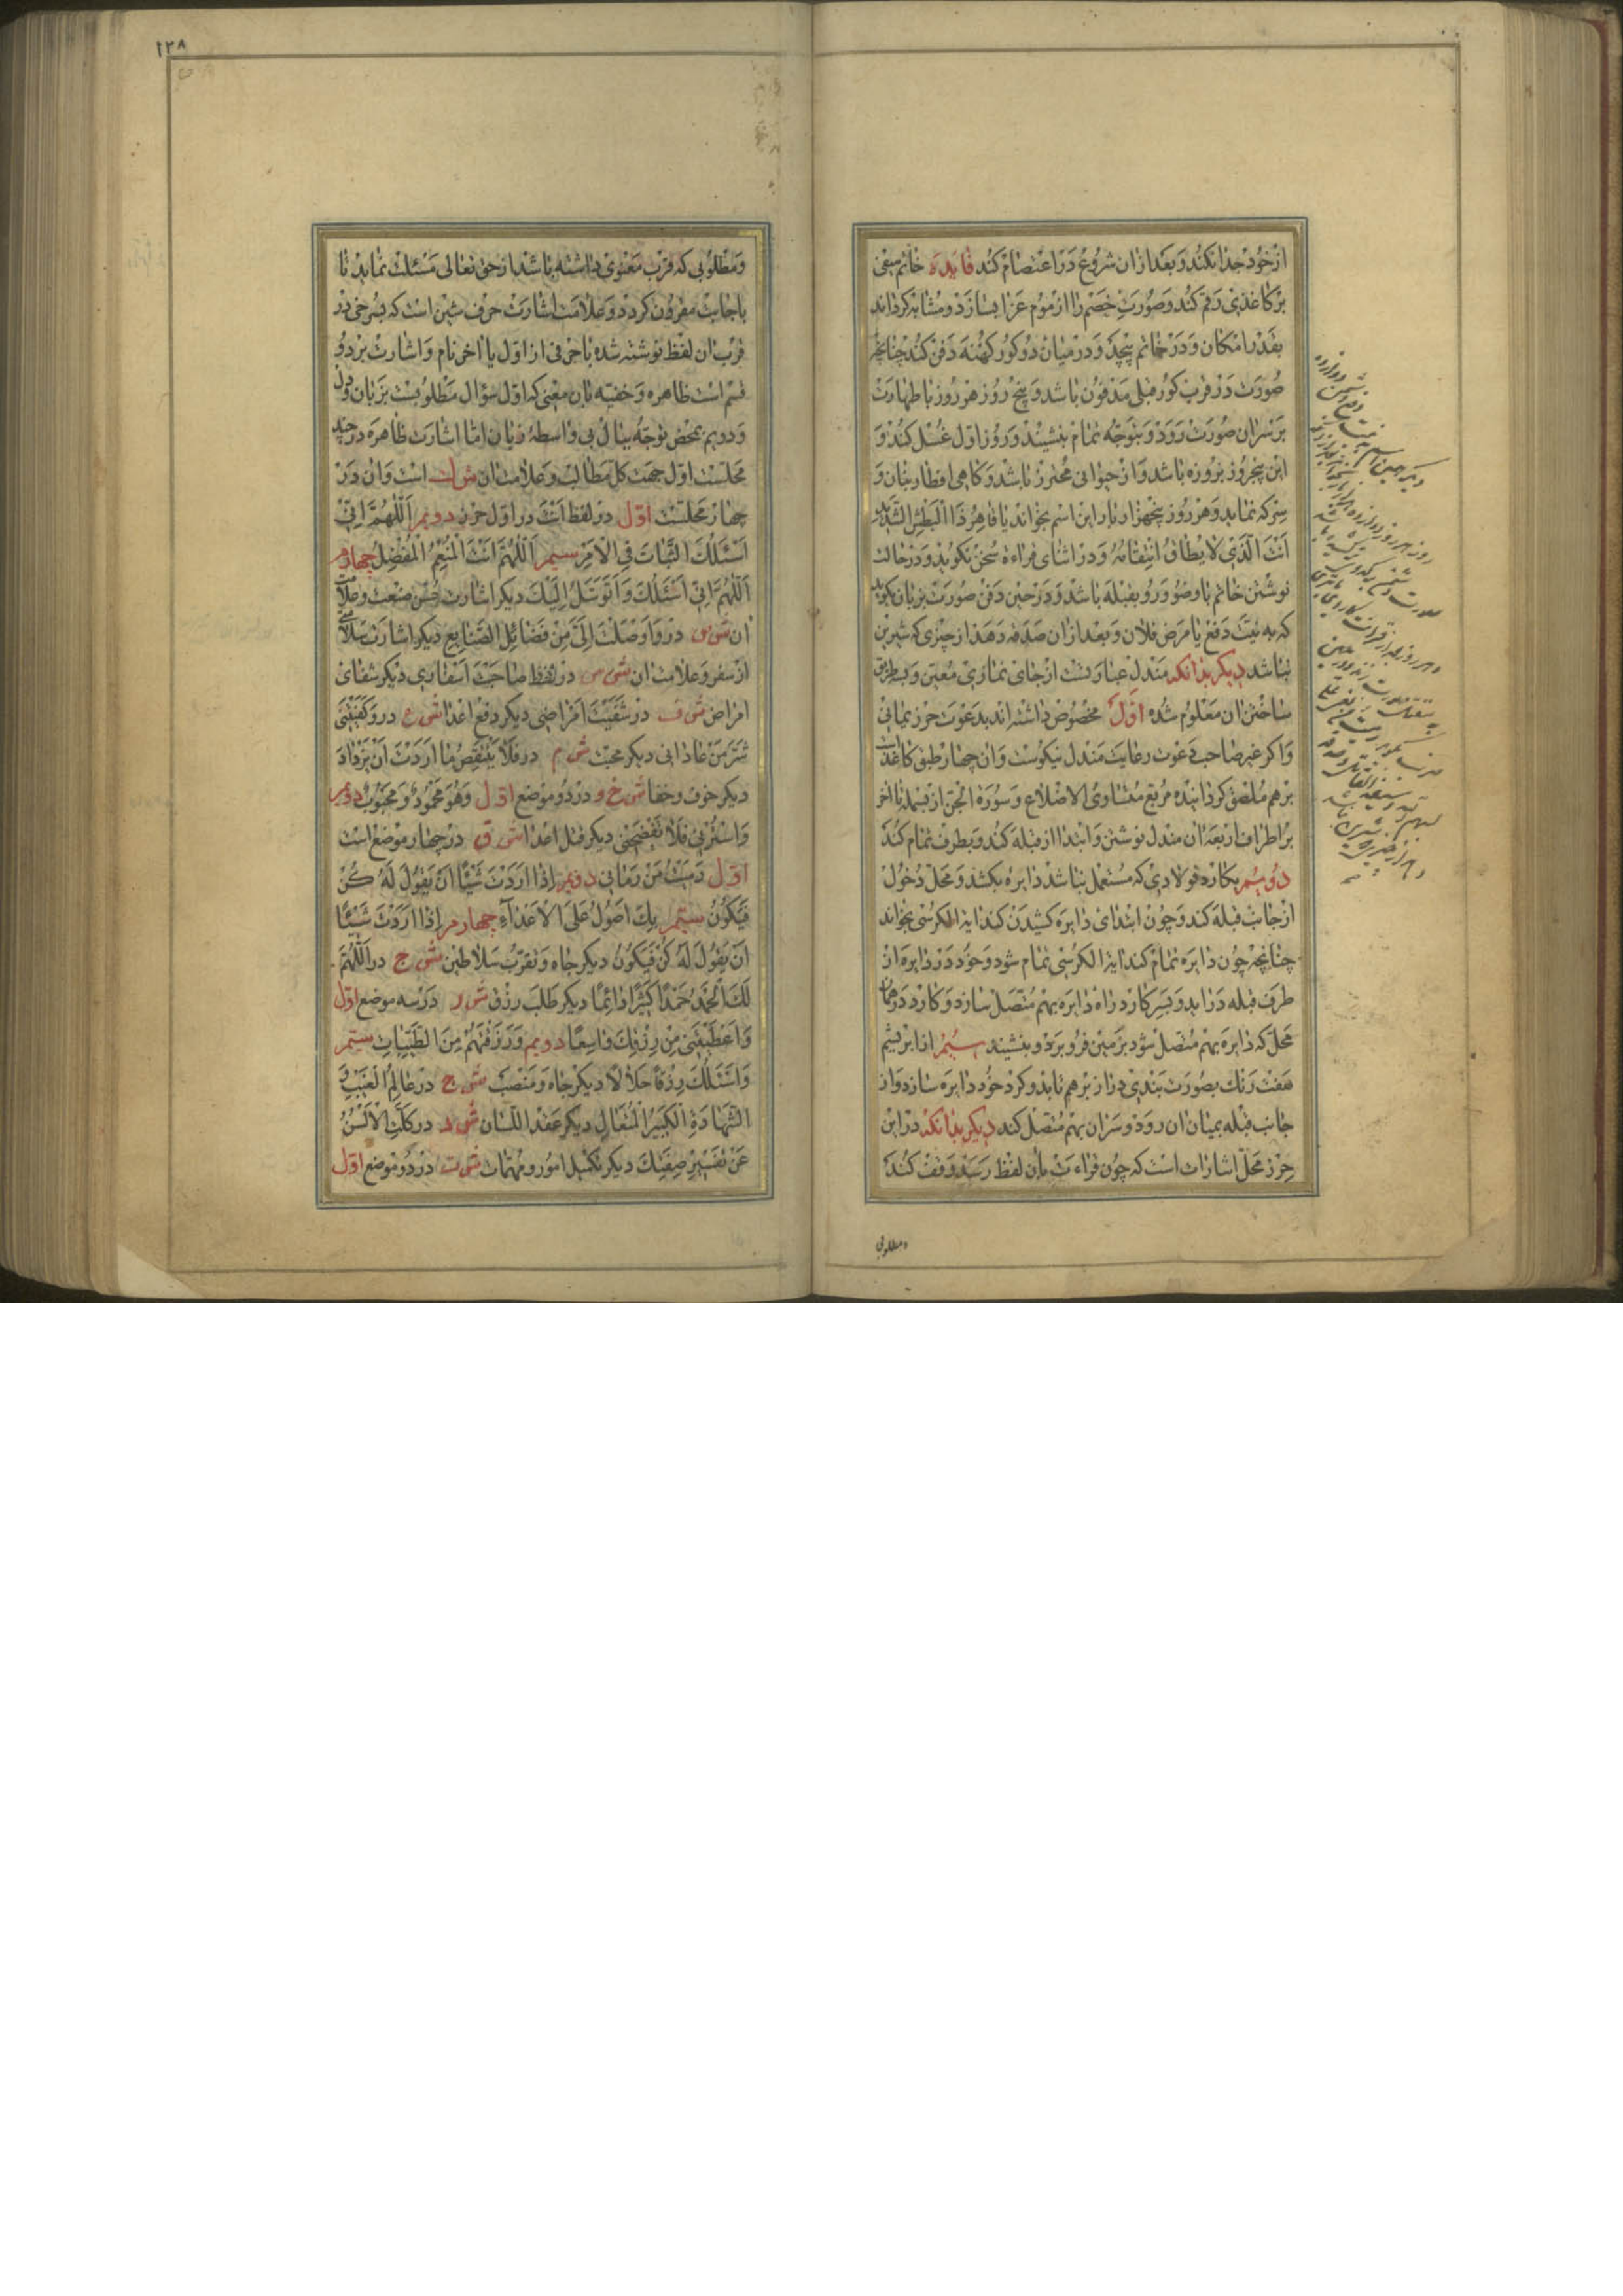 از خود جدا نکند و بعد از ان شروع در اعتصام کند فایده خاتم سیفی
بر کاغذی رقم کند و صورت خصم را از موم عزا بسازد و مشابه کرداند
بقدر امکان و در خاتم پیچد و در میان دو کور کهنه دفن کند چنانچه
صورت در قرب کور قبلی مدفون باشد و پنج روز هر روز با طهارت
بر سر ان صورت رود و بتوجه تمام بنشیند و روز اول غسل کند و
این پنج روز بروزه باشد و از حیوانی محترز باشد و کاهی افطار بنان و
سرکه نماید و هر روز پنجهزار بار این اسم بخواند یا قاهر ذا البطش الشدید
انت الذی لا یطاق انتقامه و در اثنای قراءة سخن نکوید و در حالت
نوشتن خاتم با وضو و رو بقبله باشد و در حین دفن صورت بزبان بکوید
که به نیت دفع یا مرض فلان و بعد از ان صدقه دهد از چیزی که شیرین
نباشد دیکر بدانکه مندل عبارتست از جای نمازی معین و بطریق
ساختن ان معلوم شده اول مخصوص داشته اند بدعوت حرز یمانی
و اکر غیر صاحب دعوت رعایت مندل نیکوست و ان چهار طبق کاغذست
برهم ملصق کردانیده مربع متساوی الاضلاع و سورة الجن از بسمله تا اخر
بر اطراف اربعه ان مندل نوشتن و ابتدا از قبله کند و بطرف تمام کند
دویم بکارد فولادی که مستعمل نباشد دایره بکشد و محل دخول
از جانب قبله کند و چون ابتدای دایره کشیدن کند ایة الکرسی بخواند
چنانچه چون دایره تمام کند ایة الکرسی تمام شود و خود در دایره از
طرف قبله دراید و بسر کارد راه دایره بهم متصل سازد و کارد در همان
محل که دایره بهم متصل شود بزمین فرو برد و بنشیند سیم از ابریشم
هفت رنک بصورت بندی دراز برهم تابد و کرد خود دایره سازد و از
جانب قبله بمیان ان رود و سر ان بهم متصل کند دیکر بدانکه در این
حرز محل اشارات است که چون قراءت بان لفظ رسد وقف کند
و مطلوبی
۱۲۸
و مطلوبی که قرب معنوی داشته باشد از حق تعالی مسئلت نماید تا
باجابت مقرون کردد و علامت اشارت حرف شین است که بسرخی در
قرب ان لفظ نوشته شده با حرفی از اول یا اخر نام و اشارت بر دو
قسم است ظاهره و خفیه بان معنی که اول سؤال مطلوبست بزبان و دل
و دویم بمحض توجه ببال بی واسطه زبان اما اشارت ظاهره در چند
محلست اول جهت کل مطالب و علامت ان ش ک است و ان در
چهار محلست اول در لفظ انت در اول حرز دویم اللهم انی
اسئلک الثبات فی الامر سیم اللهم انت المنعم المفضل چهارم
اللهم انی اسئلک و اتوسل الیک دیکر اشارت حسن صنعت و علامت
ان ش ص در و اوصلت الی من فضائل الصنایع دیکر اشارت سلامتی
از سفر و علامت ان ش س در لفظ صاحبت اسفاری دیکر شفای
امراض ش ف در شفیت امراضی دیکر دفع اعدا ش ع در و کفیتنی
شر من عادانی دیکر محبت ش م در فلا ینتقص ما اردت ان یزداد
دیکر خوف و خفا ش خ و در دو موضع اول وهو محمود و محبوب دویم
و استرنی فلا تفضحنی دیکر قتل اعدا ش ق در چهار موضع است
اول رمیت من رمانی دویم اذا اردت شیئا ان یقول له کن
فیکون سیم بک اصول علی الاعداء چهارم اذا اردت شیئا
ان یقول له کن فیکون دیکر جاه و تقرب سلاطین ش ج در اللهم
لک الحمد حمدا کثیرا دائما دیکر طلب رزق ش ر در سه موضع اول
و اعطیتنی من رزقک واسعا دویم و رزقتهم من الطیبات سیم
و اسئلک رزقا حلالا دیکر جاه و منصب ش ج در عالم الغیب و
الشهادة الکبیر المتعال دیکر عقد اللسان ش د در کلت الالسن
عن تفسیر صفتک دیکر تکمیل امور و مهمات ش ت در دو موضع اول